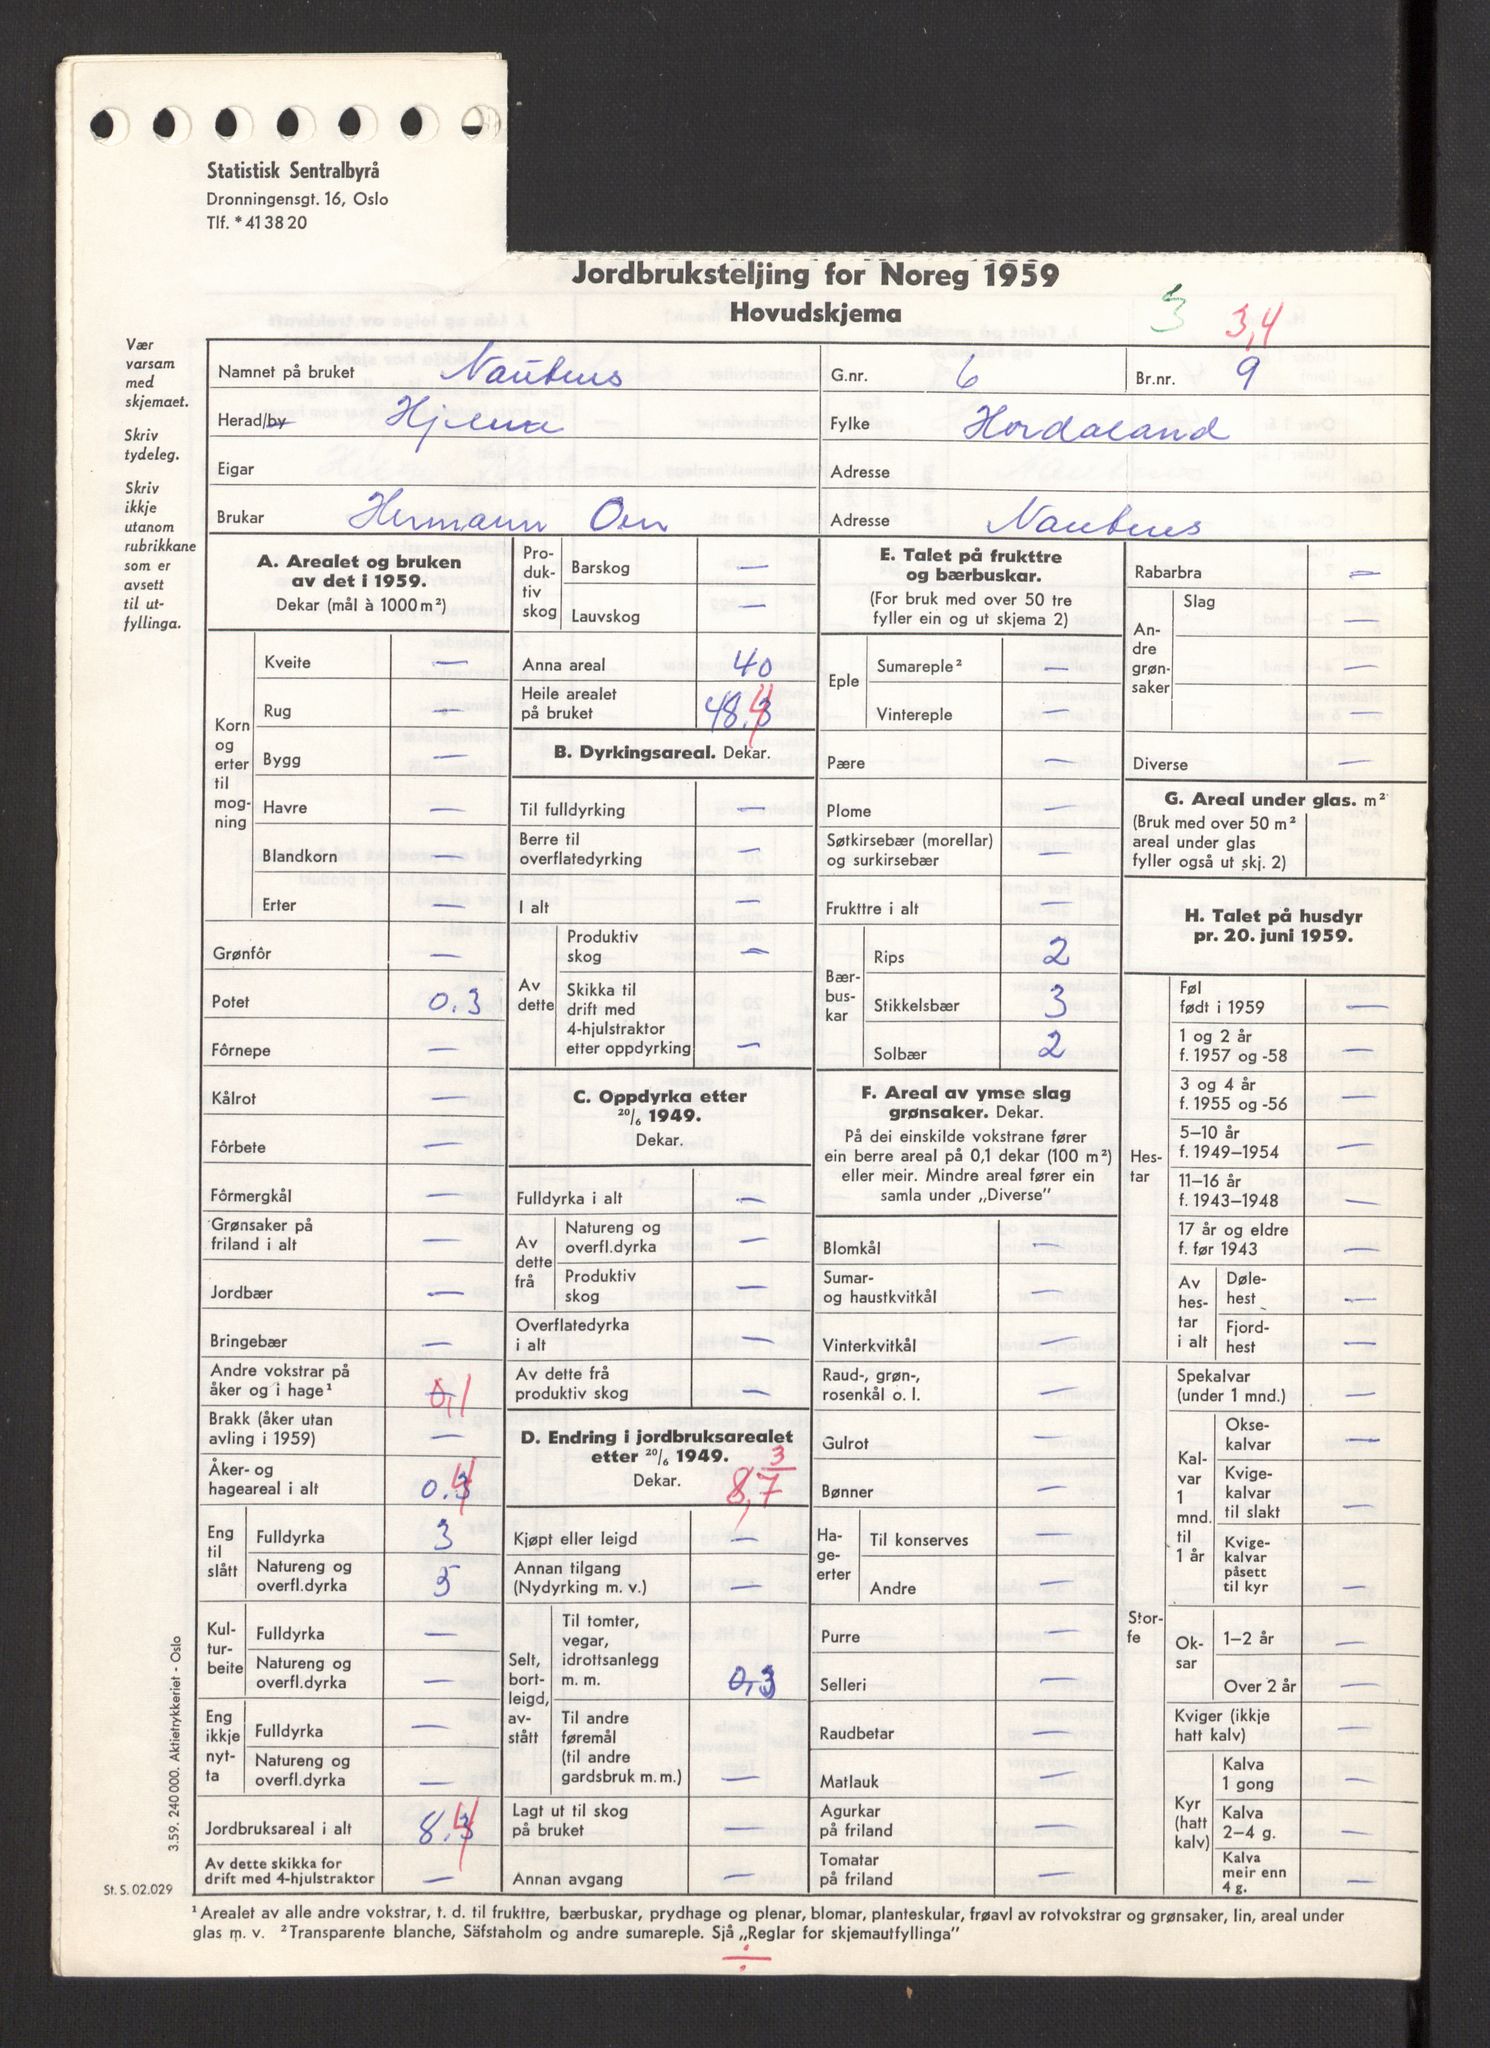 Statistisk Sentralbyrå
Dronningensgt. 16, Oslo
Tlf. *413820
Jordbruksteljing for Noreg 1959
Hovudskjema
3 3,4
Vær
varsam
med
skjemaet.
Skriv
tydeleg.
Skriv
ikkje
utanom
rubrikkane
som er
avsett
til ut-
fyllinga.
Namnet på bruket G.nr. 6 Br.nr. 9
Herad/by Fylke Hordaland
Eigar Adresse
Brukar Hermann Oen Adresse
A. Arealet og bruken
av det i 1959.
Dekar (mål à 1000 m²)
Korn
og
erter
til
mog-
ning
Kveite —
Rug —
Bygg —
Havre —
Blandkorn —
Erter —
Grønfôr —
Potet 0.3
Fôrnepe —
Kålrot —
Fôrbete —
Fôrmergkål —
Grønsaker på
friland i alt —
Jordbær —
Bringebær —
Andre vokstrar på
åker og i hage¹ 0,1
Brakk (åker utan
avling i 1959) —
Åker- og
hageareal i alt 0.3 4
Eng
til
slått
Fulldyrka 3
Natureng og
overfl.dyrka 5
Kul-
tur-
beite
Fulldyrka —
Natureng og
overfl.dyrka —
Eng
ikkje
nyt-
ta
Fulldyrka —
Natureng og
overfl.dyrka —
Jordbruksareal i alt 8.3 4
Av dette skikka for
drift med 4-hjulstraktor —
Pro-
duk-
tiv
skog
Barskog —
Lauvskog —
Anna areal 40
Heile arealet
på bruket 48.3 4
B. Dyrkingsareal. Dekar.
Til fulldyrking —
Berre til
overflatedyrking —
I alt —
Av
dette
Produktiv
skog —
Skikka til
drift med
4-hjulstraktor
etter oppdyrking —
C. Oppdyrka etter
20/6 1949.
Dekar.
Fulldyrka i alt —
Av
dette
frå
Natureng og
overfl.dyrka —
Produktiv
skog —
Overflatedyrka
i alt —
Av dette frå
produktiv skog —
D. Endring i jordbruksarealet
etter 20/6 1949.
Dekar. 3
8,7
Kjøpt eller leigd —
Annan tilgang
(Nydyrking m. v.) —
Selt,
bort-
leigd,
av-
stått
Til tomter,
vegar,
idrottsanlegg
m. m. 0.3
Til andre
føremål
(til andre
gardsbruk m. m.) —
Lagt ut til skog
på bruket —
Annan avgang —
E. Talet på frukttre
og bærbuskar.
(For bruk med over 50 tre
fyller ein og ut skjema 2)
Eple
Sumareple² —
Vintereple —
Pære —
Plome —
Søtkirsebær (morellar)
og surkirsebær —
Frukttre i alt —
Bær-
bus-
kar
Rips 2
Stikkelsbær 3
Solbær 2
F. Areal av ymse slag
grønsaker. Dekar.
På dei einskilde vokstrane fører
ein berre areal på 0,1 dekar (100 m²)
eller meir. Mindre areal fører ein
samla under „Diverse”
Blomkål —
Sumar-
og haustkvitkål —
Vinterkvitkål —
Raud-, grøn-,
rosenkål o. l. —
Gulrot —
Bønner —
Ha-
ge-
erter
Til konserves —
Andre —
Purre —
Selleri —
Raudbetar —
Matlauk —
Agurkar
på friland —
Tomatar
på friland —
Rabarbra —
An-
dre
grøn-
saker
Slag —
—
—
Diverse —
G. Areal under glas. m²
(Bruk med over 50 m²
areal under glas
fyller også ut skj. 2)
H. Talet på husdyr
pr. 20. juni 1959.
Hes-
tar
Føl
født i 1959 —
1 og 2 år
f. 1957 og -58 —
3 og 4 år
f. 1955 og -56 —
5–10 år
f. 1949–1954 —
11–16 år
f. 1943–1948 —
17 år og eldre
f. før 1943 —
Av
hes-
tar
i alt
Døle-
hest —
Fjord-
hest —
Stor-
fe
Spekalvar
(under 1 mnd.) —
Kal-
var
1
mnd.
til
1 år
Okse-
kalvar —
Kvige-
kalvar
til slakt —
Kvige-
kalvar
påsett
til kyr —
Ok-
sar
1–2 år —
Over 2 år —
Kviger (ikkje
hatt kalv) —
Kyr
(hatt
kalv)
Kalva
1 gong —
Kalva
2–4 g. —
Kalva
meir enn
4 g. —
3.59. 240 000. Aktietrykkeriet - Oslo
St. S. 02.029
¹ Arealet av alle andre vokstrar, t. d. til frukttre, bærbuskar, prydhage og plenar, blomar, planteskular, frøavl av rotvokstrar og grønsaker, lin, areal under
glas m. v. ² Transparente blanche, Säfstaholm og andre sumareple. Sjå „Reglar for skjemautfyllinga”
÷